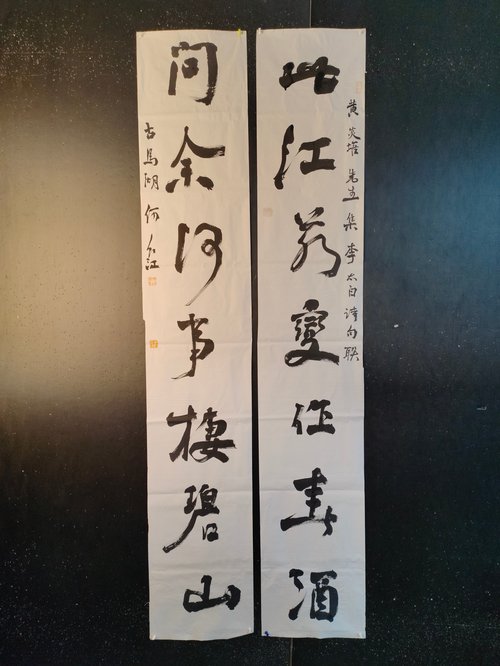 此江若變作春酒
黃炎培先生集李太白詩句联
問余何事棲碧山
古馬湖何